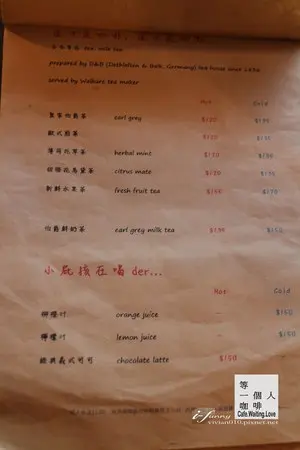 tea, milk tea
prepared by D&B (Dethlefsen & Balk, Germany) tea house since
served by Walküre tea maker
Hot Cold
皇家伯爵茶 earl grey $120
歐式煎茶
薄荷花草茶 herbal mint $150
甜橙花馬黛茶 citrus mate
新鮮水果茶 fresh fruit tea
伯爵鮮奶茶 earl grey milk tea $150
小屁孩在喝 der...
Hot Cold
柳橙汁 orange juice – $150
檸檬汁 lemon juice – $150
經典義式可可 chocolate latte $150
等一個人咖啡
Cafe.Waiting.Love
vivian010.pixnet.net